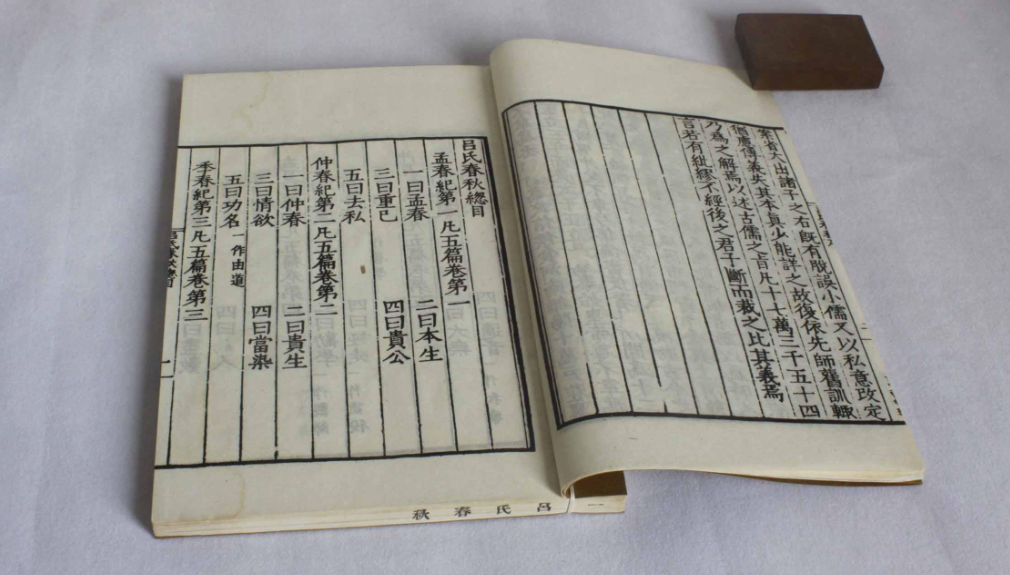 案省大出諸子之右既有脫誤小儒又以私意改定
猶慮傳義失其本真少能詳之故復依先師舊訓輒
乃為之解焉以述古儒之旨凡十七萬三千五十四
言若有紕繆不經後之君子斷而裁之比其義焉
呂氏春秋總目
孟春紀第一凡五篇卷第一
一曰孟春 二曰本生
三曰重己 四曰貴公
五曰去私
仲春紀第二凡五篇卷第二
一曰仲春 二曰貴生
三曰情欲 四曰當染
五曰功名一作由道
季春紀第三凡五篇卷第三
呂氏春秋總目
一
呂氏春秋